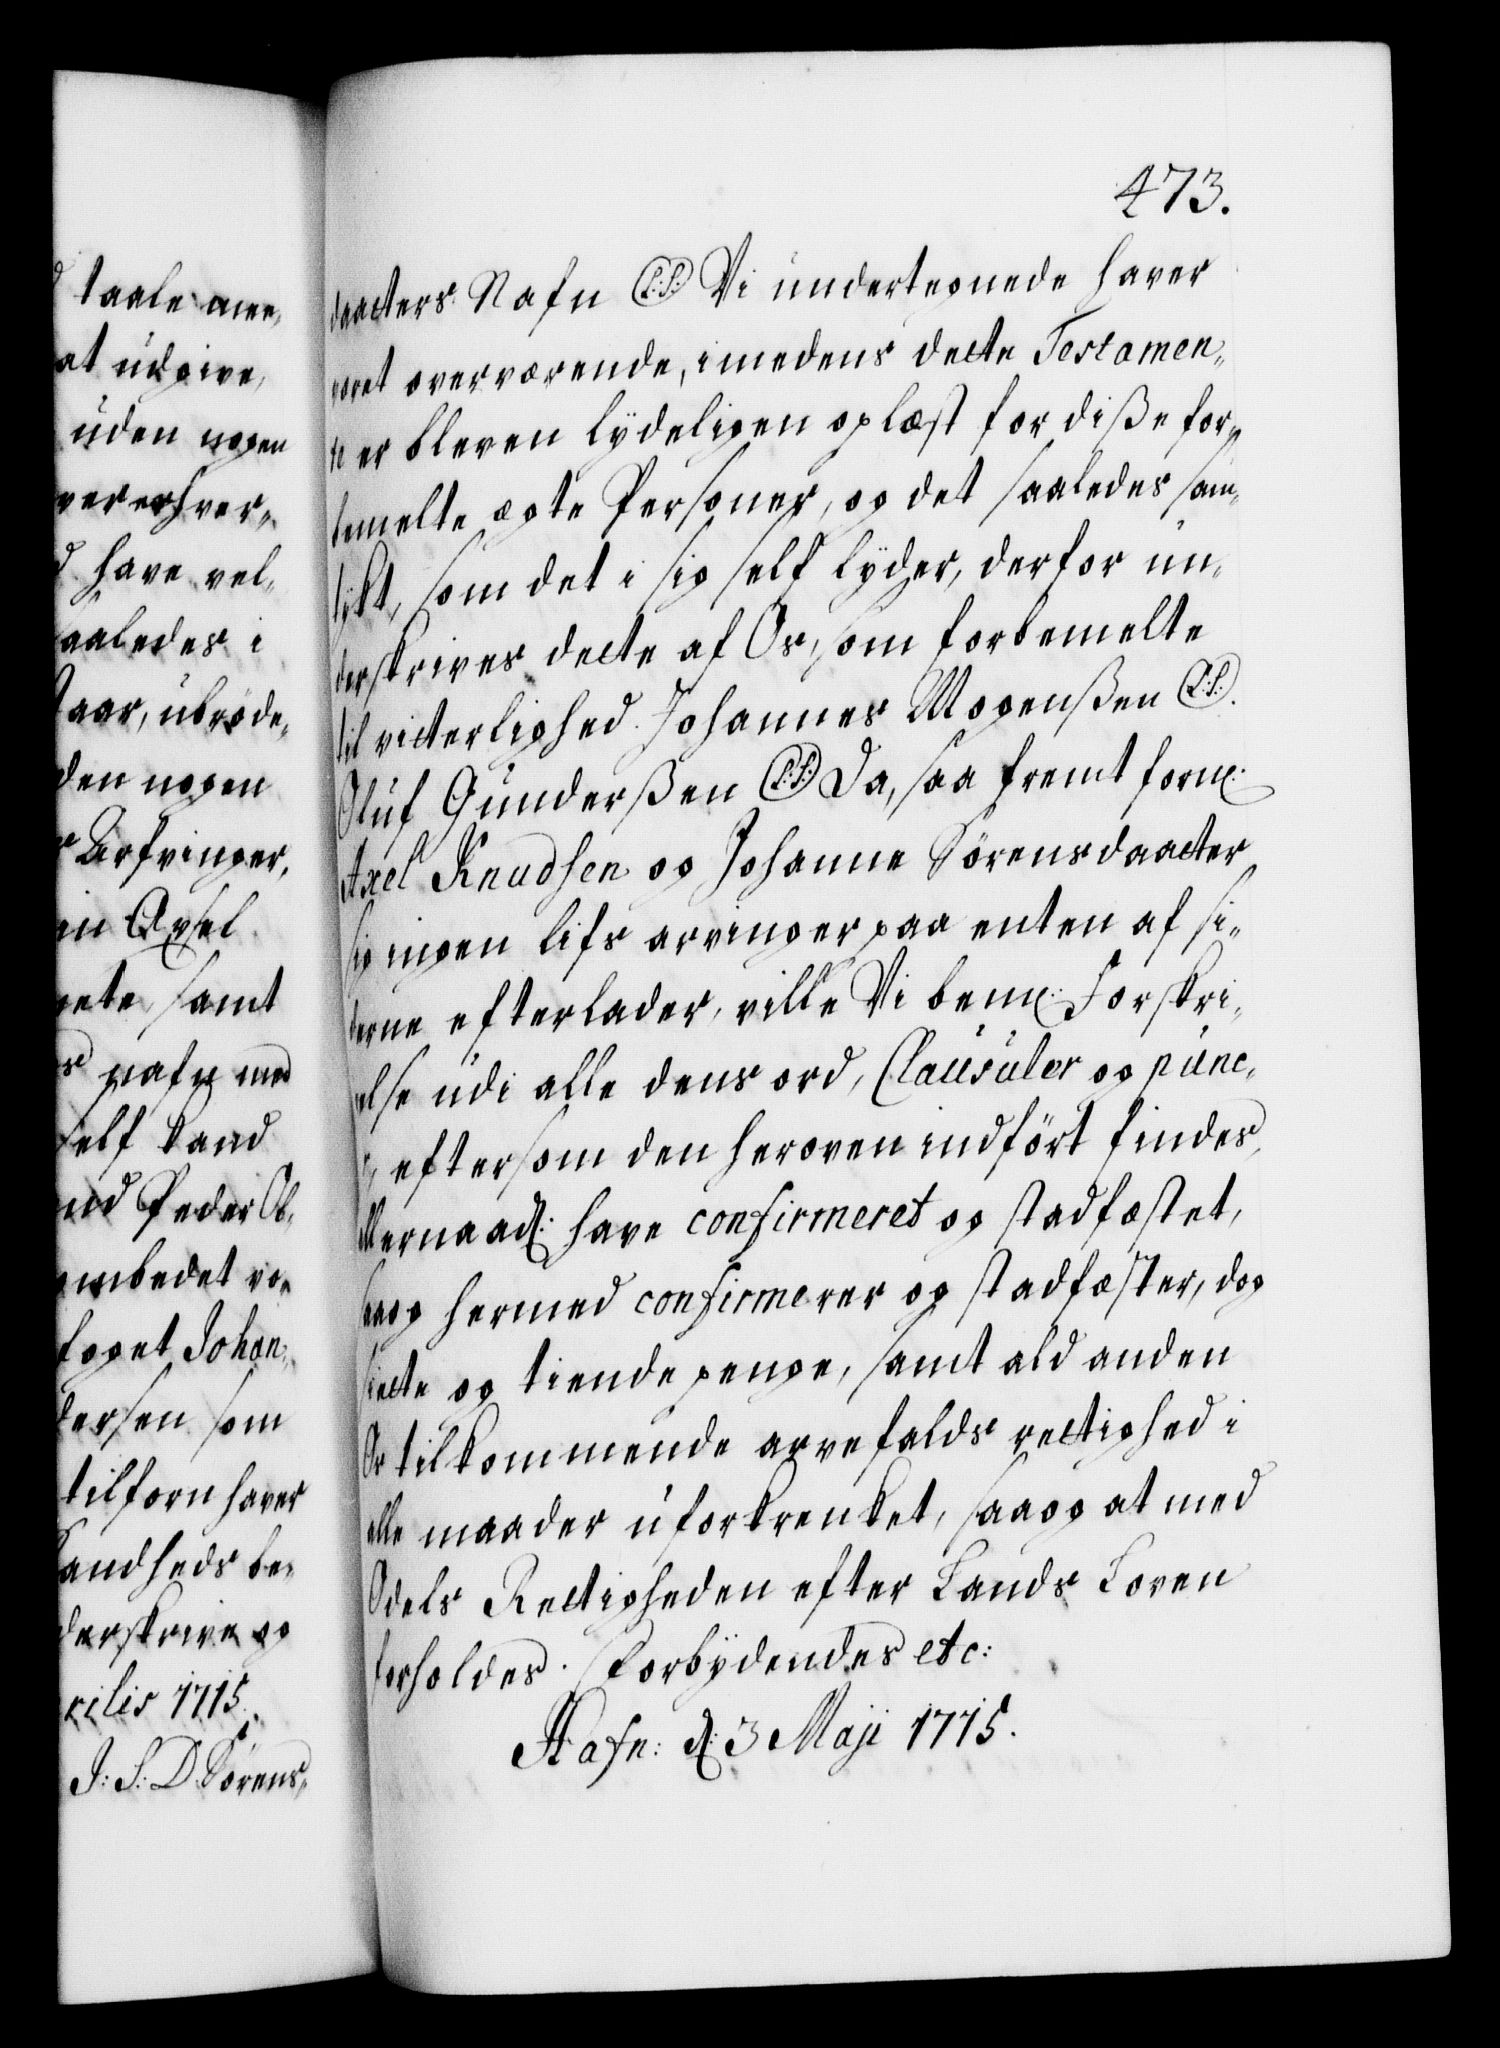 taale mee„
at udgive,
uden nogen
ver erhver„
have vel„
saaledes i
Jaar, ubrøde„
den nogen
Arfvinger,
in Axel
nete, samt
nafn med
self kand
nd Peder Ol„
ombedet vo„
foget Johan„
dersen som
tilforn haver
Sandheds be„
derskrive og
rilis 1715.
J: S: D Sørens„
473.
daatters Nafn (L:S:) Vi undertegnede haver
voret overværende, imedens dette Testamen„
te er bleven lydeligen oplæst for diße for„
bemelte ægte Personer, og det saaledes sam„
tykt, som det i sig self lyder, derfor un„
derskrives dette af Os, som forbemelte
til vitterlighed. Johannes Mogenßen (L:S:).
Oluf Gunderßen (L:S:) Da, saa fremt forne:
Axel Knudsen og Johanne Sørensdaatter
sig ingen lifs arvinger paa enten af si„
derne efterlader, ville Vi bemte: Forskri„
velse udi alle dens ord, Clausuler og punc„
ter, eftersom den heroven indført findes,
allernaadst: have confirmeret og stadfæstet,
saa og hermed confirmerer og stadfæster, dog
siette og tiende penge, samt ald anden
Os tilkommende arvefalds rettighed i
alle maader uforkrenket, saa og at med
Odels Rettigheden efter Lands Loven
forholdes. Forbydendes etc:
Hafn: d: 3 Maji 1715.